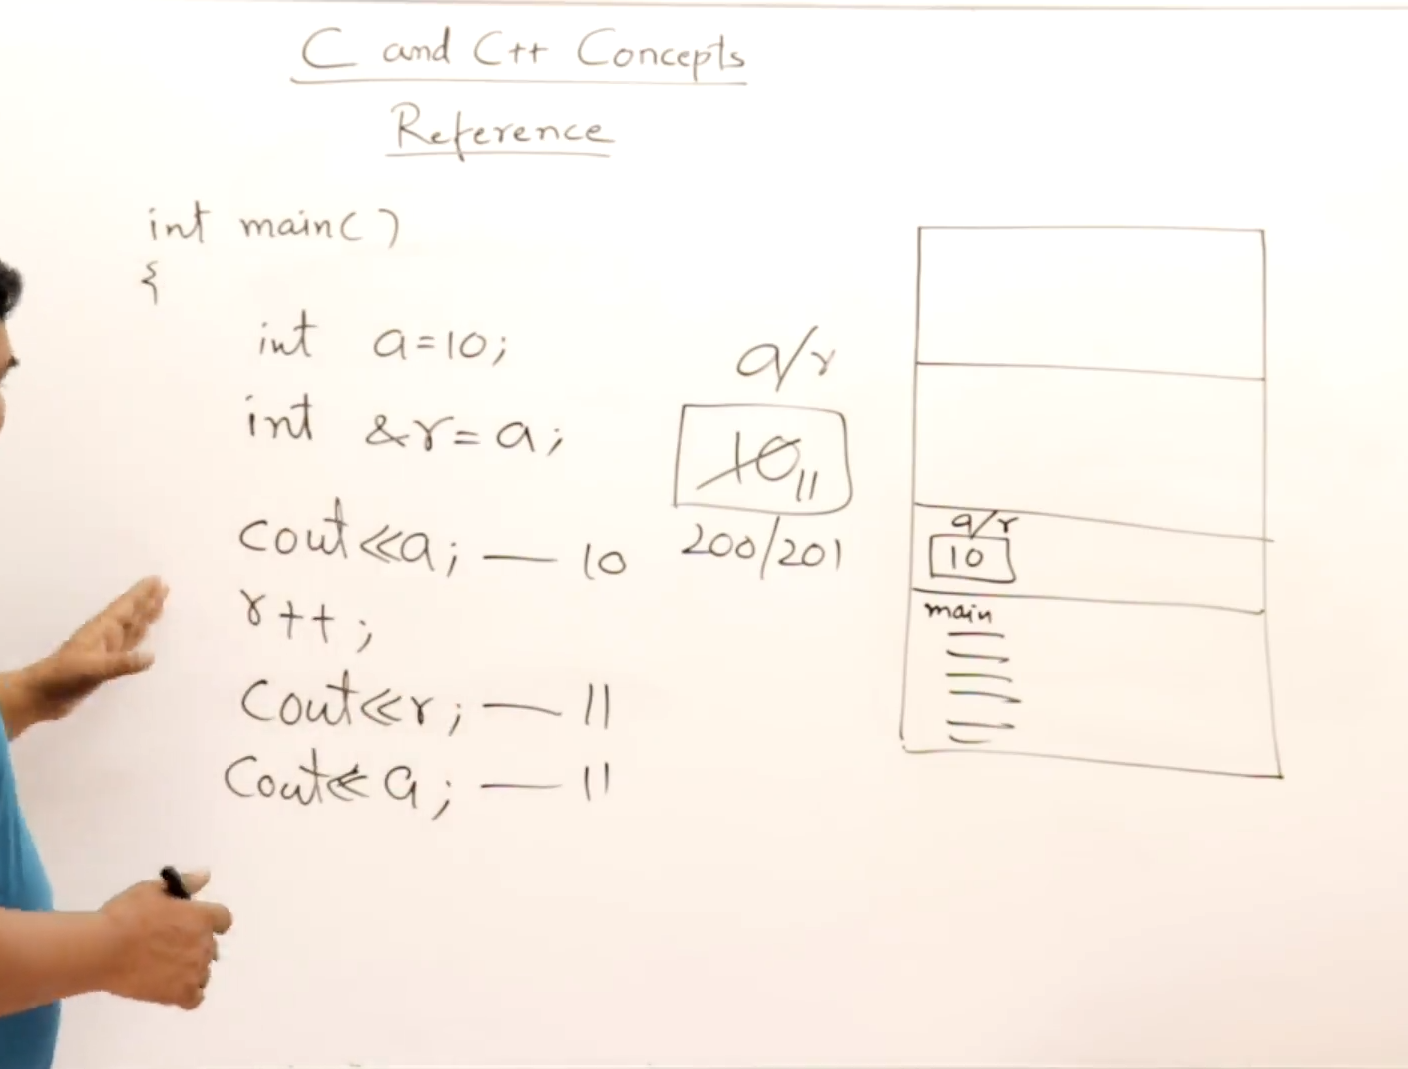 C and C++ Concepts
Reference
int main()
{
int a=10;
int &r=a;
cout<<a; — 10
r++;
cout<<r; — 11
cout<<a; — 11
a/r
10 11
200/201
a/r
10
main